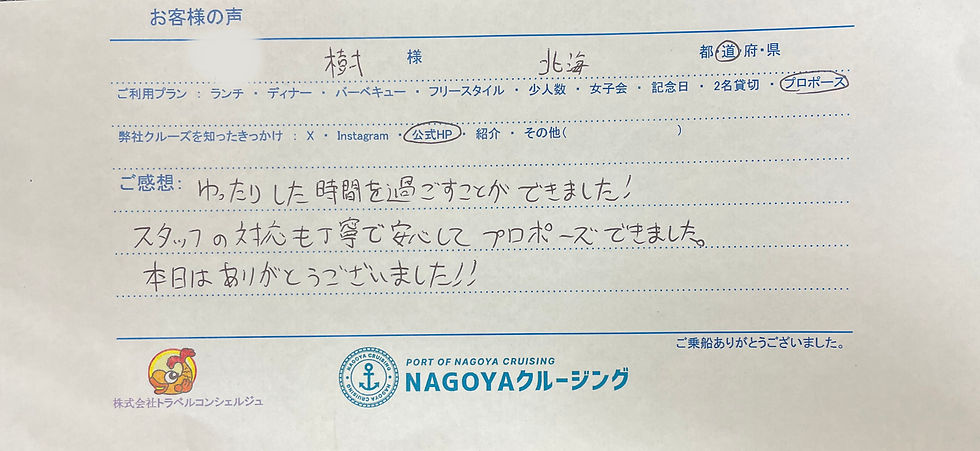 お客様の声
樹 様 北海 都・道・府・県
ご利用プラン : ランチ ・ ディナー ・ バーベキュー ・ フリースタイル ・ 少人数 ・ 女子会 ・ 記念日 ・ 2名貸切 ・ プロポーズ
弊社クルーズを知ったきっかけ : X ・ Instagram ・ 公式HP ・ 紹介 ・ その他( )
ご感想: ゆったりした時間を過ごすことができました!
スタッフの対応も丁寧で安心してプロポーズできました。
本日はありがとうございました!!
ご乗船ありがとうございました。
株式会社トラベルコンシェルジュ
NAGOYA CRUISING
PORT OF NAGOYA CRUISING
NAGOYAクルージング